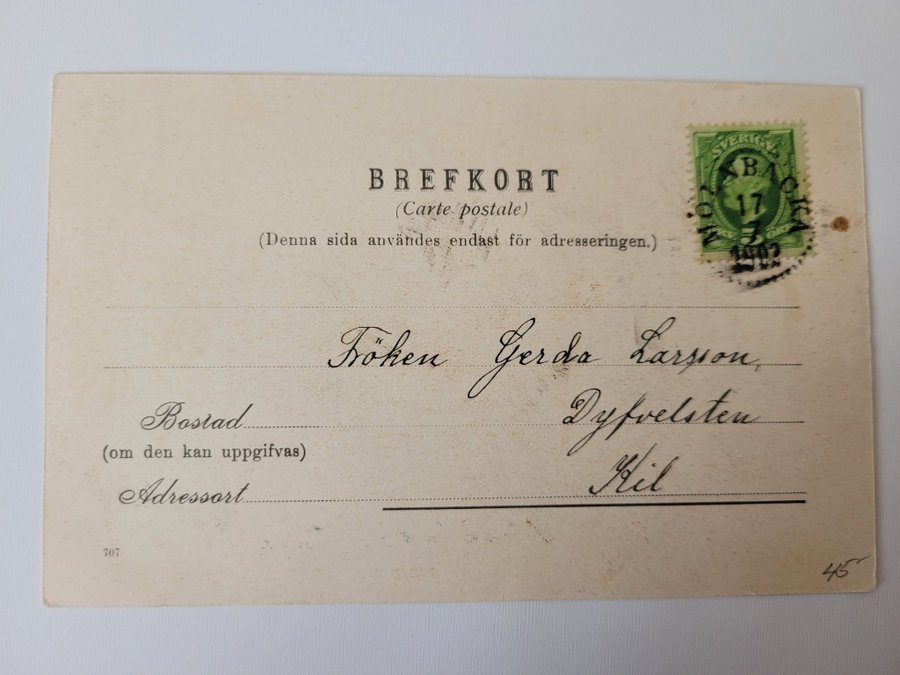 BREFKORT
(Carte postale)
(Denna sida användes endast för adresseringen.)
SVERIGE
MÖLNBACKA
17
7
1902
Fröken Gerda Larsson,
Bostad
Dyfvelsten
(om den kan uppgifvas)
Kil
Adressort
707
45